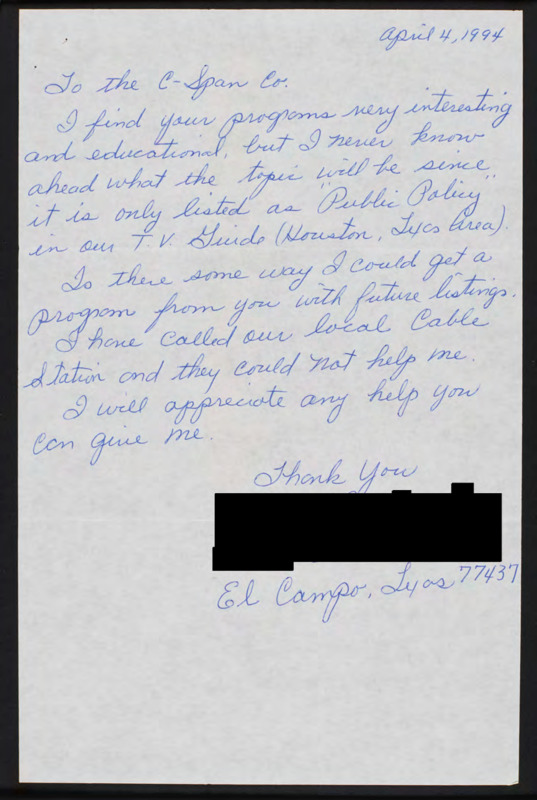 April 4, 1994
To the C-Span Co.
I find your programs very interesting
and educational, but I never know
ahead what the topic will be since
it is only listed as "Public Policy"
in our T.V. Guide (Houston, Texas Area).
Is there some way I could get a
program from you with future listings.
I have called our local Cable
Station and they could not help me.
I will appreciate any help you
can give me.
Thank You
El Campo, Texas 77437